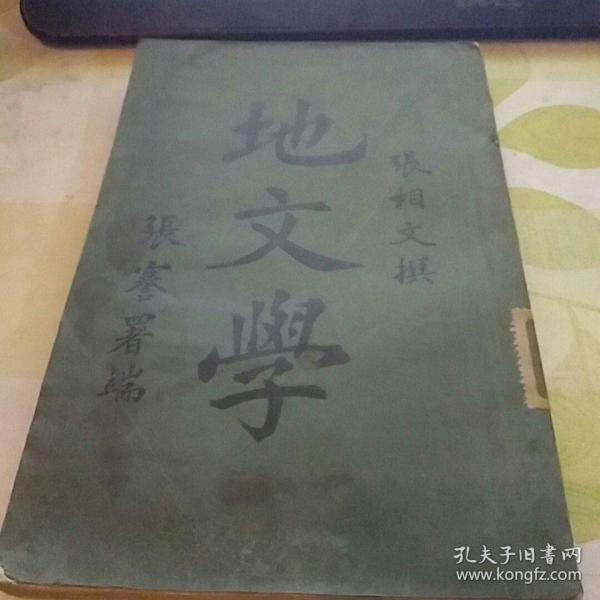 張相文撰
地文學
張謇署端
孔夫子旧書网
www.kongfz.com